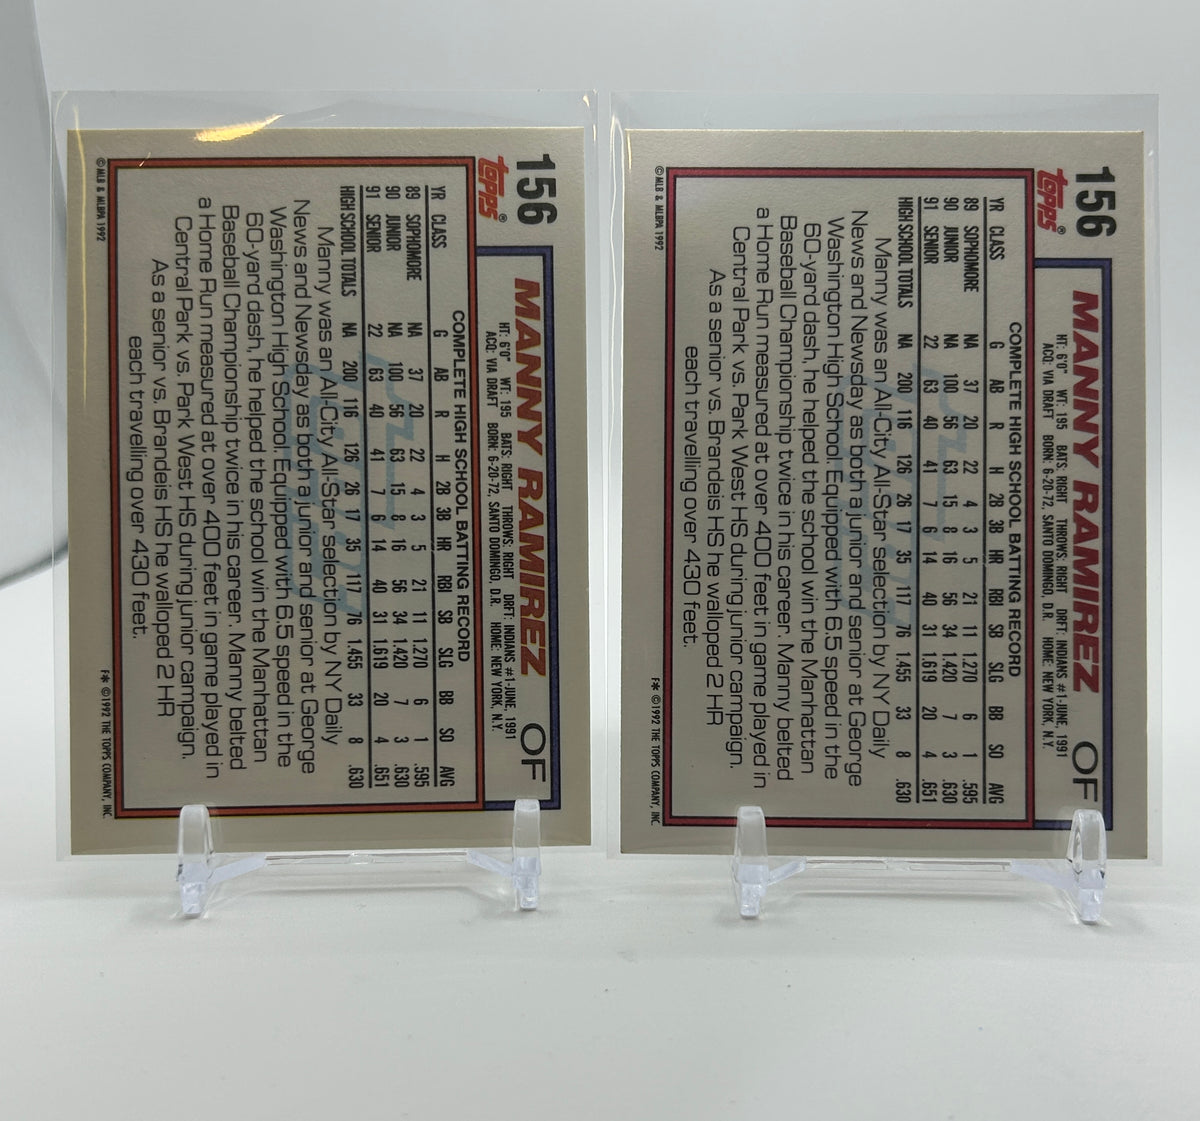 156
topps®
OF
MANNY RAMIREZ
HT: 6'0" WT: 195 BATS: RIGHT THROWS: RIGHT DRFT: INDIANS #1-JUNE, 1991
ACQ: VIA DRAFT BORN: 6-20-72, SANTO DOMINGO, D.R. HOME: NEW YORK, N.Y.
COMPLETE HIGH SCHOOL BATTING RECORD
YR CLASS G AB R H 2B 3B HR RBI SB SLG BB SO AVG
89 SOPHOMORE NA 37 20 22 4 3 5 21 11 1.270 6 1 .595
90 JUNIOR NA 100 56 63 15 8 16 56 34 1.420 7 3 .630
91 SENIOR 22 63 40 41 7 6 14 40 31 1.619 20 4 .651
HIGH SCHOOL TOTALS NA 200 116 126 26 17 35 117 76 1.455 33 8 .630
Manny was an All-City All-Star selection by NY Daily
News and Newsday as both a junior and senior at George
Washington High School. Equipped with 6.5 speed in the
60-yard dash, he helped the school win the Manhattan
Baseball Championship twice in his career. Manny belted
a Home Run measured at over 400 feet in game played in
Central Park vs. Park West HS during junior campaign.
As a senior vs. Brandeis HS he walloped 2 HR
each travelling over 430 feet.
© MLB & MLBPA 1992
F* © 1992 THE TOPPS COMPANY, INC.
156
topps®
OF
MANNY RAMIREZ
HT: 6'0" WT: 195 BATS: RIGHT THROWS: RIGHT DRFT: INDIANS #1-JUNE, 1991
ACQ: VIA DRAFT BORN: 6-20-72, SANTO DOMINGO, D.R. HOME: NEW YORK, N.Y.
COMPLETE HIGH SCHOOL BATTING RECORD
YR CLASS G AB R H 2B 3B HR RBI SB SLG BB SO AVG
89 SOPHOMORE NA 37 20 22 4 3 5 21 11 1.270 6 1 .595
90 JUNIOR NA 100 56 63 15 8 16 56 34 1.420 7 3 .630
91 SENIOR 22 63 40 41 7 6 14 40 31 1.619 20 4 .651
HIGH SCHOOL TOTALS NA 200 116 126 26 17 35 117 76 1.455 33 8 .630
Manny was an All-City All-Star selection by NY Daily
News and Newsday as both a junior and senior at George
Washington High School. Equipped with 6.5 speed in the
60-yard dash, he helped the school win the Manhattan
Baseball Championship twice in his career. Manny belted
a Home Run measured at over 400 feet in game played in
Central Park vs. Park West HS during junior campaign.
As a senior vs. Brandeis HS he walloped 2 HR
each travelling over 430 feet.
© MLB & MLBPA 1992
F* © 1992 THE TOPPS COMPANY, INC.